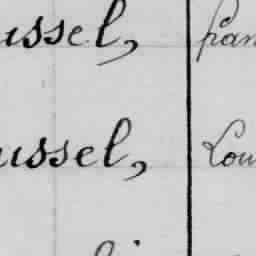 ussel,
ussel, Lou